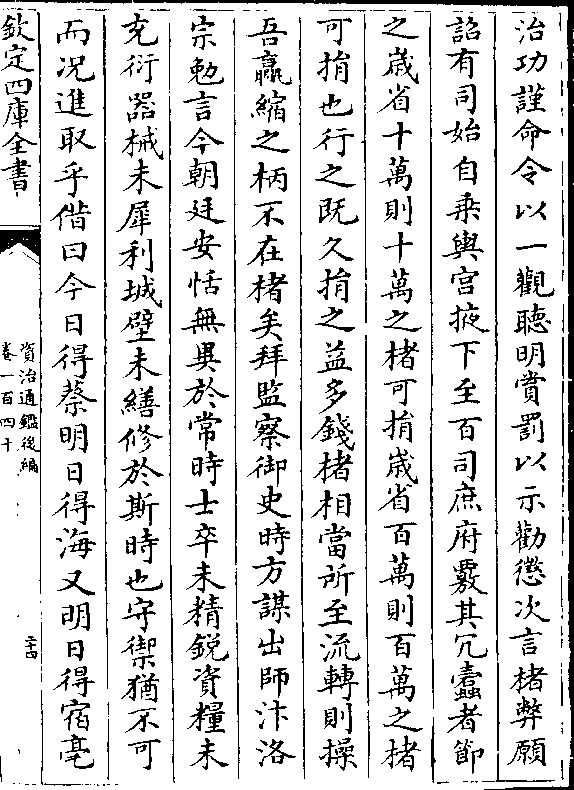 治功謹命令以一觀聽明賞罰以示勸懲次言楮弊願
詔有司始自乗輿宫掖下至百司庶府覈其冗蠧者節
之歲省十萬則十萬之楮可捐歲省百萬則百萬之楮
可捐也行之既久捐之益多錢楮相當所至流轉則操
吾贏縮之柄不在楮矣拜監察御史時方謀出師汴洛
宗勉言今朝廷安恬無異於常時士卒未精銳資糧未
充衍器械未犀利城壁未繕修於斯時也守禦猶不可
而况進取乎借曰今日得蔡明日得海又明日得宿亳
欽定四庫全書
資治通鑑後編
卷一百四十
二十四